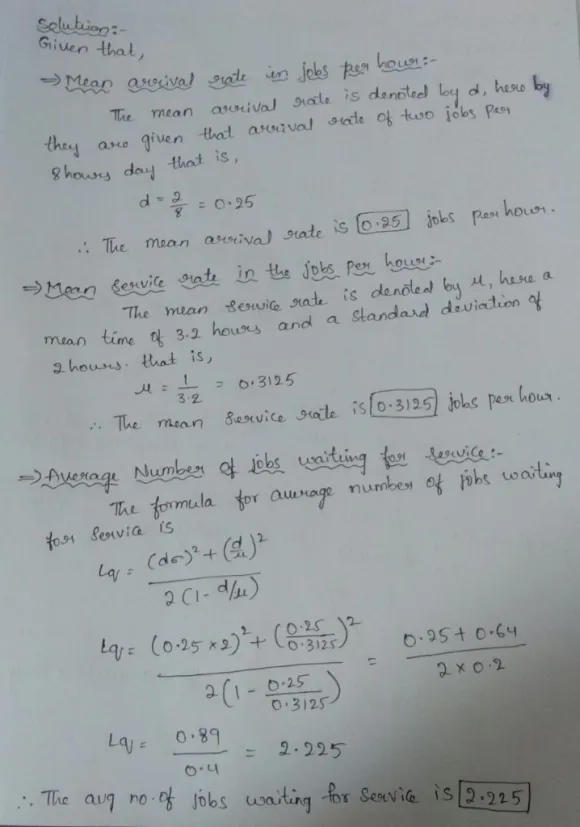 Solution:-
Given that,
⇒ Mean arrival rate in jobs per hour:-
The mean arrival rate is denoted by d, here by
they are given that arrival rate of two jobs per
8 hours day that is,
d = 2/8 = 0.25
∴ The mean arrival rate is 0.25 jobs per hour.
⇒ Mean Service rate in the jobs per hour:-
The mean Service rate is denoted by μ, here a
mean time of 3.2 hours and a Standard deviation of
2 hours. that is,
μ = 1/3.2 = 0.3125
∴ The mean Service rate is 0.3125 jobs per hour.
⇒ Average Number of jobs waiting for Service:-
The formula for average number of jobs waiting
for Service is
Lq = ((dσ)² + (d/μ)²) / (2(1 - d/μ))
Lq = ((0.25 × 2)² + (0.25/0.3125)²) / (2(1 - 0.25/0.3125)) = (0.25 + 0.64) / (2 × 0.2)
Lq = 0.89/0.4 = 2.225
∴ The avg no. of jobs waiting for Service is 2.225